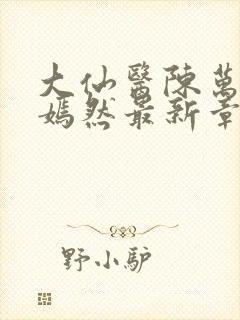 大仙醫陳萬
嫣然最新章
野小驴